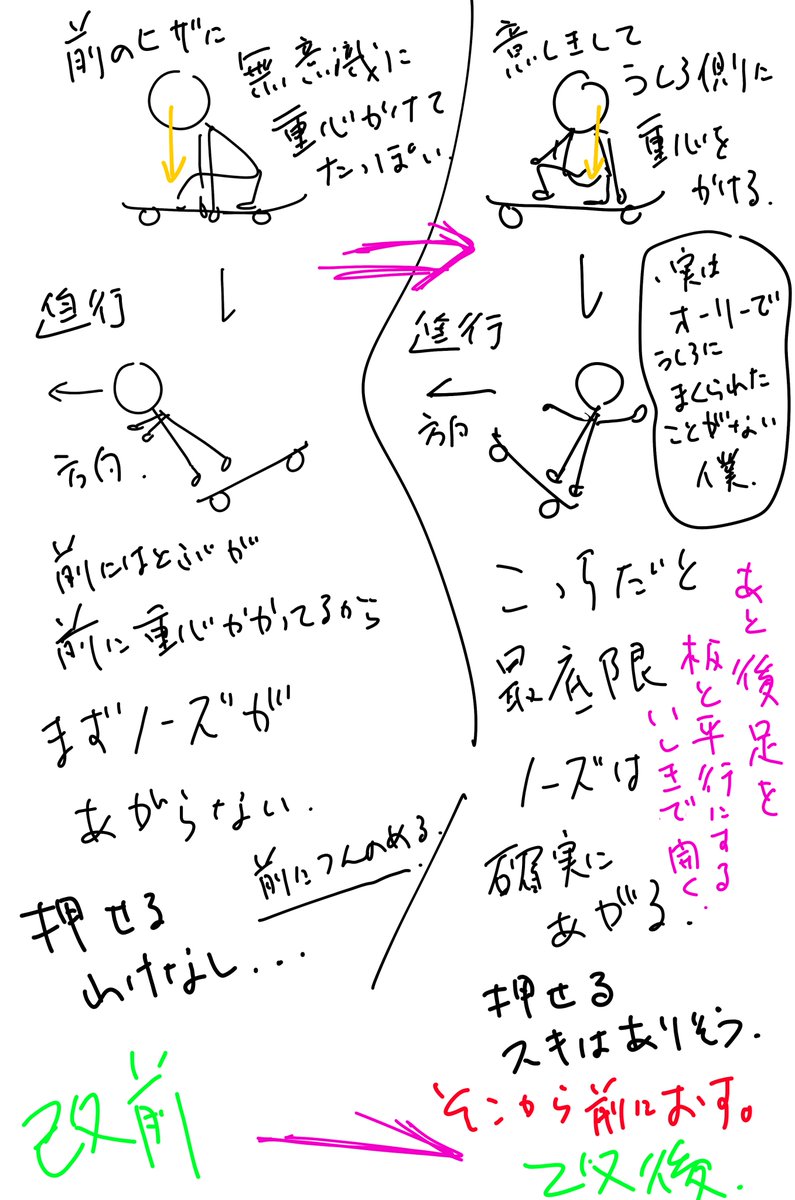 前のヒザに
無意識に
重心がかけて
たっぽい.
進行
方向.
前にはとぶが
前に重心がかかってるから
まずノーズが
あがらない.
前につんのめる.
押せる
わけなし...
改前
意しきして
うしろ側に
重心を
かける.
進行
方向
実は
オーリーで
うしろに
まくられた
ことがない
僕.
こっちだと
最底限
ノーズは
確実に
あがる.
あと後足を
板と平行にする
いしきで開く.
押せる
スキはありそう.
そこから前におす。
改後.